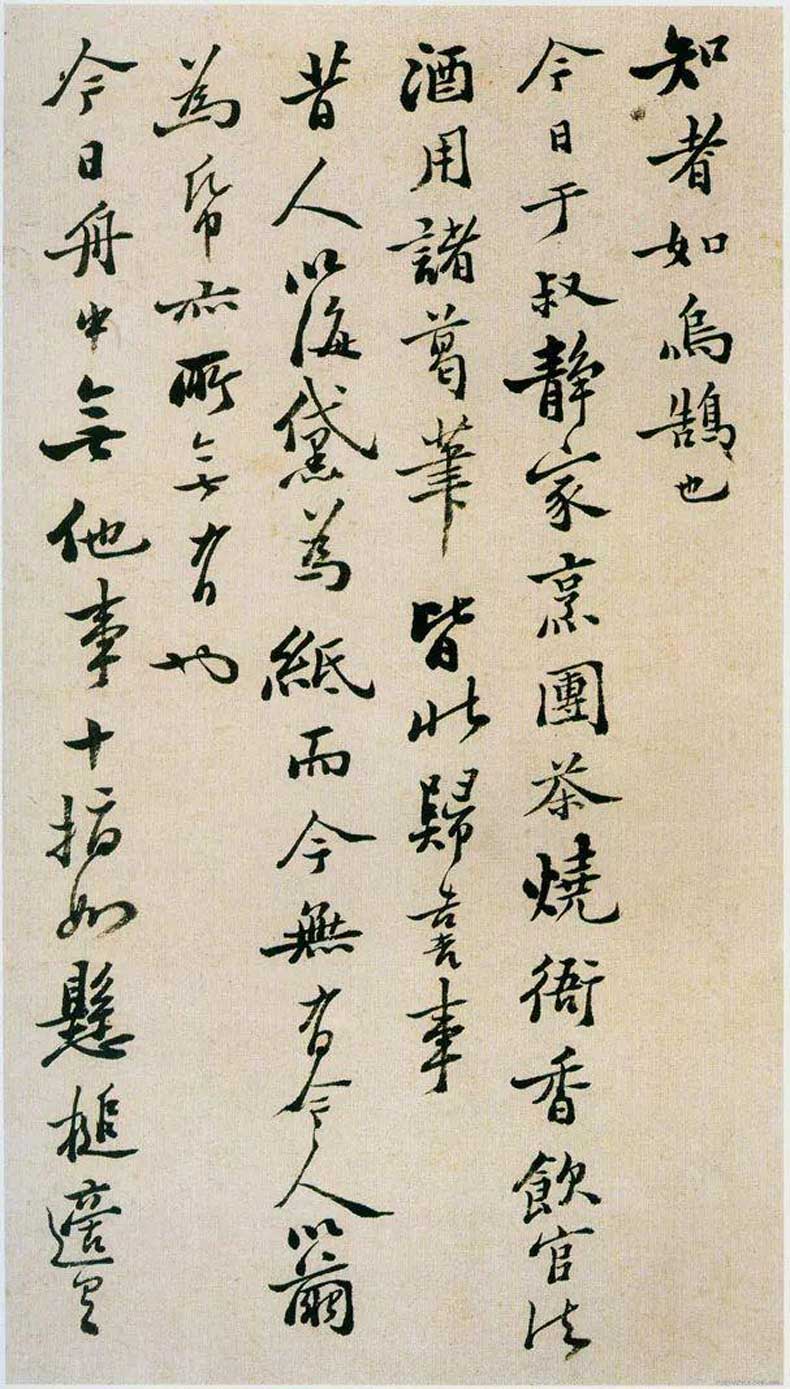 知者如烏鵠也
今日于叔静家烹團茶燒衙香飲官法
酒用諸葛筆皆北歸喜事
昔人以海黛為紙而今無有今人以繭
為帋亦所无有也
今日舟中无他事十指如懸槌適